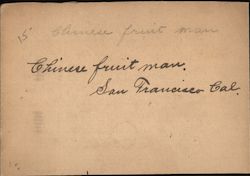 15 Chinese fruit man
Chinese fruit man.
San Francisco Cal.